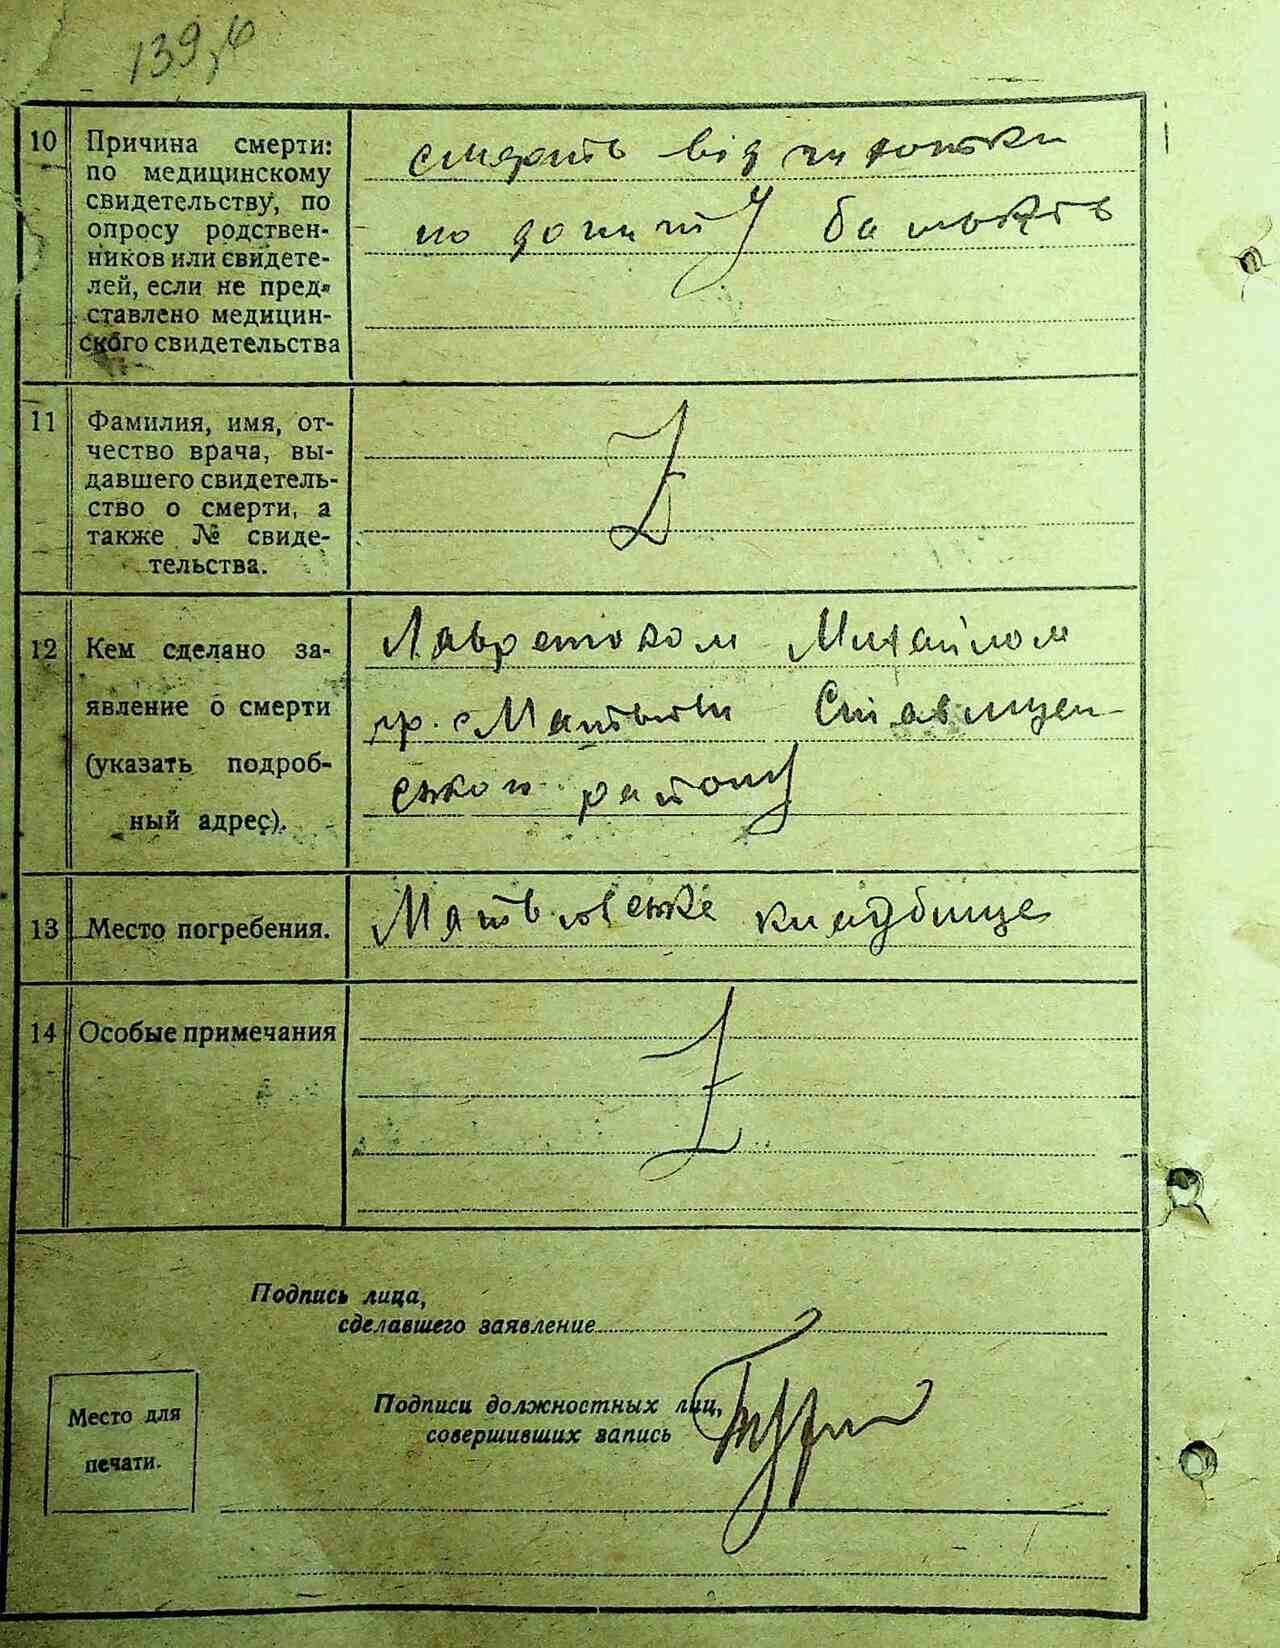 139,6
10 Причина смерти:
по медицинскому
свидетельству, по
опросу родствен-
ников или свидете-
лей, если не пред-
ставлено медицин-
ского свидетельства
смерть від
по допиту батьків
11 Фамилия, имя, от-
чество врача, вы-
давшего свидетель-
ство о смерти, а
также № свиде-
тельства.
Z
12 Кем сделано за-
явление о смерти
(указать подроб-
ный адрес).
Михайлом
гр. с Ставищен-
ского району
13 Место погребения.
кладбище
14 Особые примечания
Z
Подпись лица,
сделавшего заявление
Подписи должностных лиц,
совершивших запись
Место для
печати.